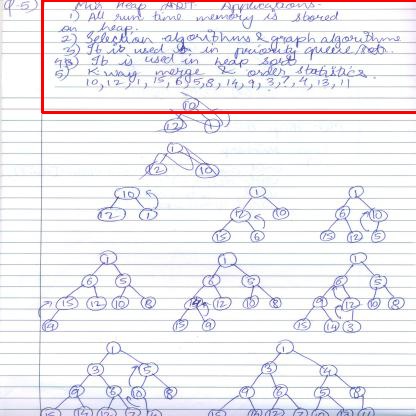 Q-5) Min Heap ADT Applications.
1) All run time memory is stored
on heap.
2) Selection algorithms & graph algorithms
3) It is used in priority queue
4) It is used in heap sort
5) K-way merge & order statistics.
10, 12, 1, 15, 6, 5, 8, 14, 9, 3, 7, 4, 13, 11
10
12 1
1
12 10
10 1 1
12 1 12 10 6 10
15 6 15 12 5
1 1 1
6 5 6 5 6 5
15 12 10 8 14 12 10 8 9 12 10 8
14 15 9 15 14 3
1 1
3 5 3 4
9 6 10 8 9 6 5 8